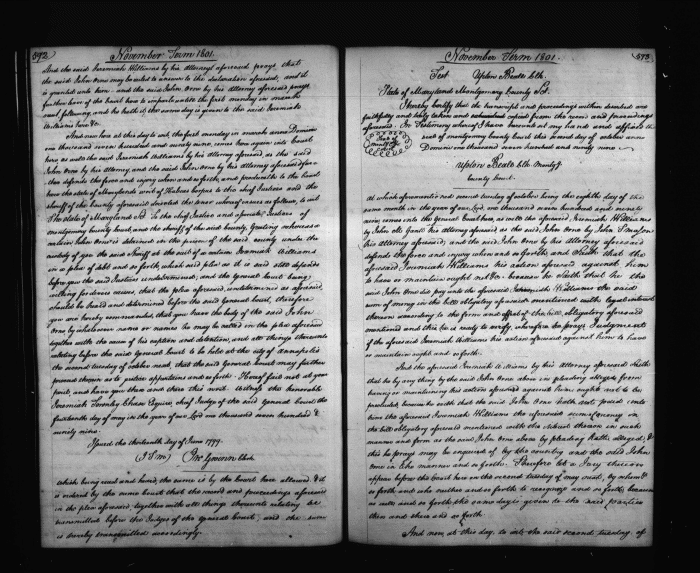 592
November Term 1801.
And the said Jeremiah Williams by his Attorney aforesaid prays that
the said John Orme may be ruled to answer to the declaration aforesaid, and it
is granted unto him. and the said John Orme by his Attorney aforesaid prays
further leave of the Court here to imparle until the first monday in march
next following, and he hath it; the same day is given to the said Jeremiah
Williams here &c.
And now here at this day to wit the first monday in march Anno Domini
one thousand seven hundred and ninety nine, comes here again into Court
here as well the said Jeremiah Williams by his Attorney aforesaid, as the said
John Orme by his Attorney, and the said John Orme by his Attorney aforesaid
defends the force and injury when and so forth, and produceth to the Court
here the state of Maryland's writ of Habeas Corpus to the chief Justice and the
Sheriff of the County aforesaid directed the tenor whereof ensues as follows, to wit
The State of Maryland Sct. To the Chief Justice and Associate Justices of
Montgomery County Court, and the Sheriff of the said County, Greeting whereas a
certain John Orme is detained in the prison of the said County under the
custody of you the said Sheriff at the suit of a certain Jeremiah Williams
in a plea of debt and so forth, which said plea as it is said still depends
before you the said Justices undetermined, and the General Court being
willing for divers causes, that the plea aforesaid, undetermined as aforesaid,
should be heard and determined before the said General Court, therefore
you are hereby commanded, that you have the body of the said John
Orme by whatsoever name or names he may be called in the plea aforesaid
together with the cause of his caption and detention, and all things thereunto
relating before the said General Court to be held at the City of Annapolis
the second tuesday of October next, that the said General Court may further
proceed therein as to justice appertains and so forth. Hereof fail not at your
peril, and have you then and there this writ. Witness the honorable
Jeremiah Townley Chase Esquire chief Judge of the said General Court the
fourteenth day of may in the year of our Lord one thousand seven hundred &
ninety nine.
Issued the thirteenth day of June 1799.
Jno Gwinn Clk.
which being read and heard, the same is by the Court here allowed. & it
is ordered by the same Court that the record and proceedings aforesaid
in the plea aforesaid, together with all things thereunto relating be
transmitted before the Judges of the General Court, and the same
is hereby transmitted accordingly.
November Term 1801.
593
Test Upton Beall Clk.
State of Maryland Montgomery County Sct.
I hereby certify that the foregoing and proceedings within recited are
faithfully and truly taken and extracted copied from the record and proceedings
aforesaid. In Testimony whereof, I have hereunto set my hand and affixed the
Seal of montgomery County this second day of october Anno
Domini one thousand seven hundred and ninety nine.
Seal of
County
Court
Upton Beall Clk Montgy
County Court.
At which aforementioned second tuesday of october being the eighth day of the
same month in the year of our Lord one thousand seven hundred and ninety
nine, comes into the general Court here, as well the aforesaid Jeremiah Williams
by John M. Gantt his attorney aforesaid as the said John Orme by John Thomson
his Attorney aforesaid; and the said John Orme by his Attorney aforesaid
defends the force and injury when and so forth and Saith that the
aforesaid Jeremiah Williams his action aforesaid against him
to have or maintain ought not &c. because he saith that he the
said John Orme did pay unto the aforesaid Jeremiah Williams the said
sum of money in the bill obligatory aforesaid mentioned with legal interest
thereon according to the form and effect of the bill obligatory aforesaid
mentioned and this he is ready to verify, wherefore he prays Judgment
if the aforesaid Jeremiah Williams his action aforesaid against him to have
or maintain ought and so forth.
And the aforesaid Jeremiah Williams by his Attorney aforesaid saith
that he by any thing by the said John Orme above in pleading alleged from
having or maintaining his action aforesaid against him ought not to be
precluded because he saith that the said John Orme hath not paid unto
him the aforesaid Jeremiah Williams the aforesaid sum of money in
the bill obligatory aforesaid mentioned with the interest thereon in such
manner and form as the said John Orme above by pleading hath alleged; &
this he prays may be enquired of by the country and the said John
Orme in like manner and so forth. Therefore let a Jury thereon
appear before the Court here on the second tuesday of may next, by whom &
so forth and who neither and so forth to recognize and so forth, because
as well and so forth, the same day is given to the said parties
then and there and so forth.
And now at this day, to wit the said second tuesday of